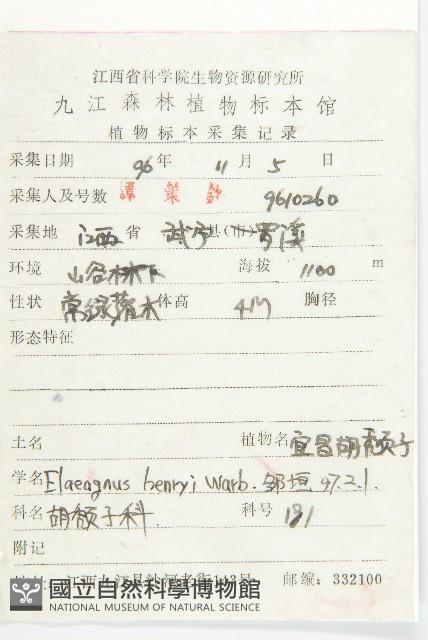 江西省科学院生物资源研究所
九江森林植物标本馆
植物标本采集记录
采集日期 96 年 11 月 5 日
采集人及号数 譚策銘 9610260
采集地 江西 省 武宁 县(市) 罗溪
环境 山谷林下 海拔 1100 m
性状 常绿灌木 体高 4M 胸径
形态特征
土名 植物名 宜昌胡颓子
学名 Elaeagnus henryi Warb. 邹垣 97.2.1.
科名 胡颓子科. 科号 181
附记
江西九江县沙河老街 号 邮编: 332100
國立自然科學博物館
NATIONAL MUSEUM OF NATURAL SCIENCE